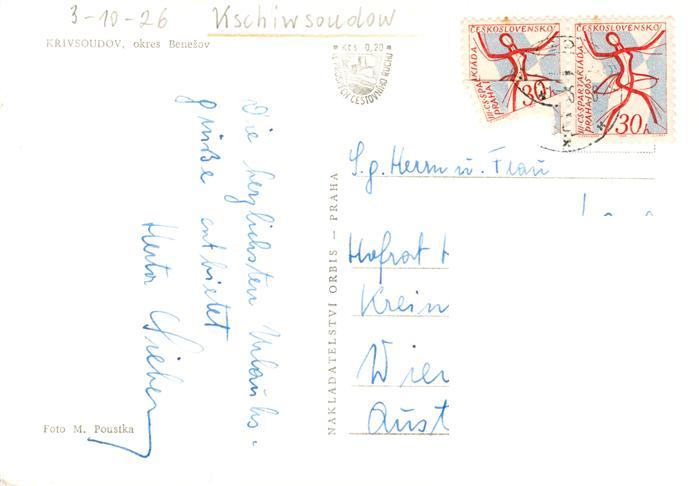 3-10-26 Kschiwsoudow
KRIVSOUDOV, okres Benešov
Kčs 0,20
CESTOVNÍHO RUCHU
ČESKOSLOVENSKO
III·CS·SPARTAKIÁDA
PRAHA·1965
30h
ČESKOSLOVENSKO
III·CS·SPARTAKIÁDA
PRAHA·1965
30h
Die herzlichsten Urlaubs-
grüße entbietet
S.g. Herrn u. Frau
Hofrat
Krein
Wien
Aust
NAKLADATELSTVÍ ORBIS — PRAHA
Foto M. Poustka